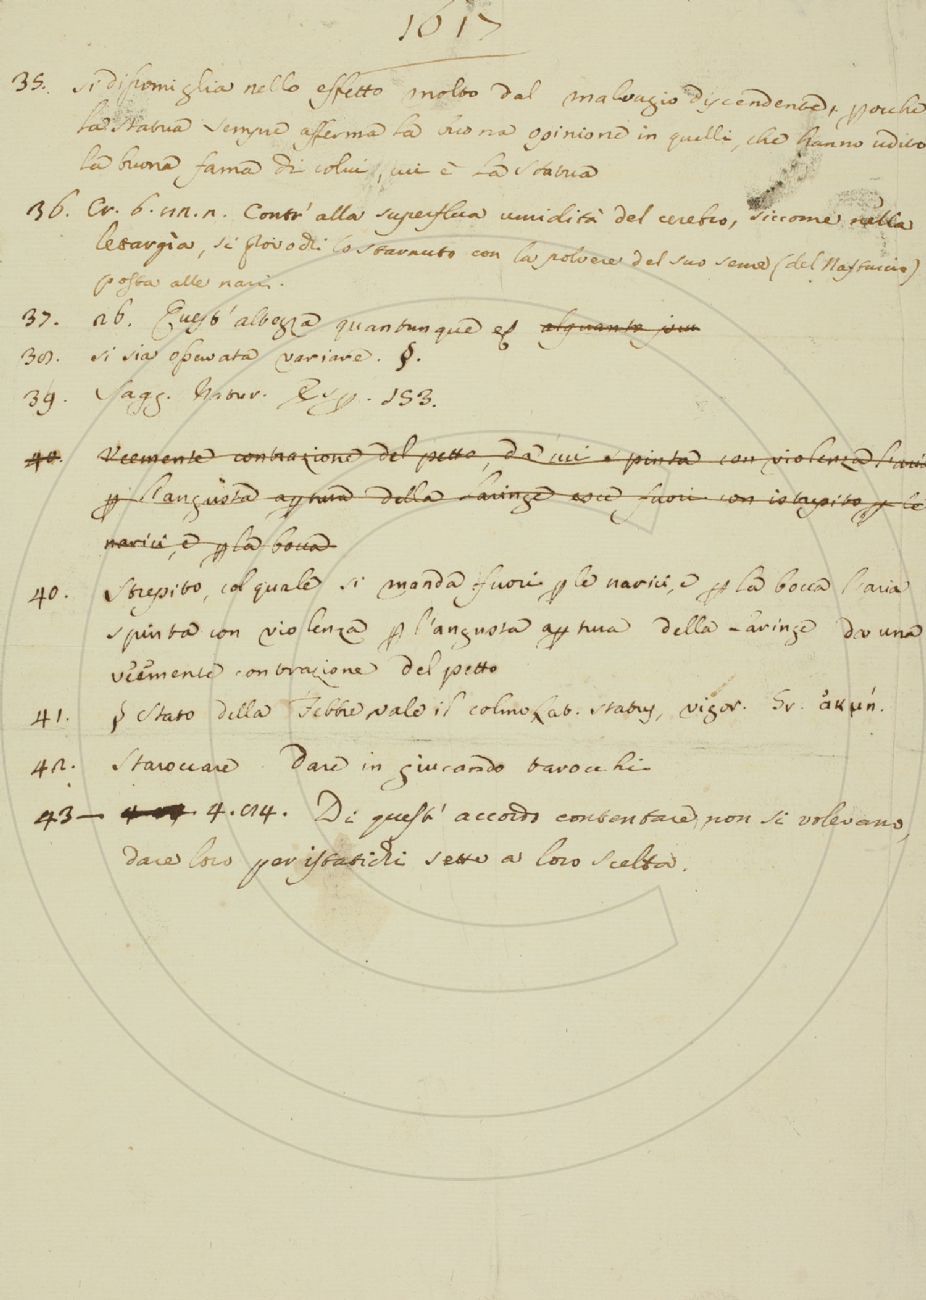 1617
35. si dissomiglia nello effetto molto dal malvagio discendente, perche
la statua sempre afferma la buona opinione in quelli, che hanno udito
la buona fama di colui, cui è la statua
36. Cr. 6. Contr' alla superflua umidità del cerebro, siccome nella
letargìa, si provochi lo starnuto con la polvere del suo seme (del Nasturcio)
posta alle nari.
37. 26. Quest' albezza quantunque
38. si sia operata variare. §.
39. Sagg. Natur. Esp. 153.
40. Veemente contrazione del petto, da cui spinta con violenza l'aria
p l'angusta aptura della Laringe esce fuori con istrepito p le
narici, e p la bocca
40. Strepito, col quale si manda fuori p le narici, e p la bocca l'aria
spinta con violenza p l'angusta aptura della Laringe da una
veemente contrazione del petto
41. § Stato della Febbre, vale il colmo, Lat. status, vigor. Gr. ἀκμή.
42. Staroccare Dare in giucando tarocchi
43 — 4. 94. Di quest' accordo contentare non si volevano,
dare loro per istatichi sette a loro scelta.